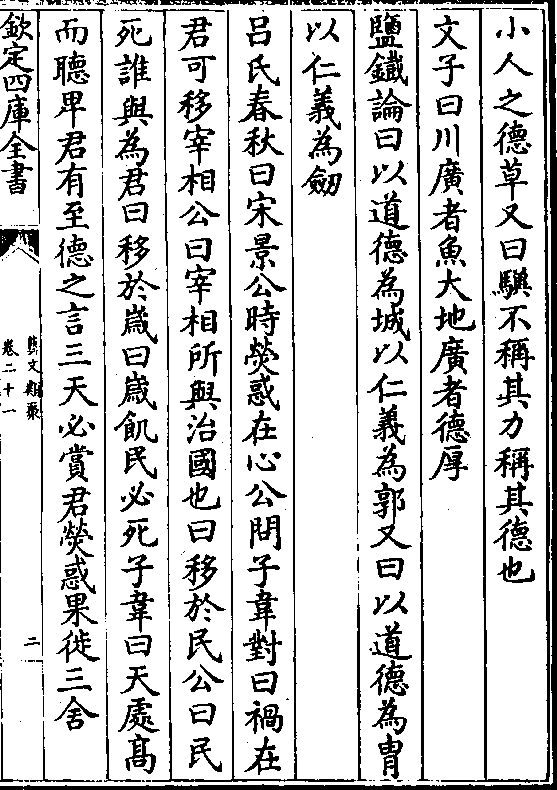 小人之德草又曰驥不稱其力稱其德也
文子曰川廣者魚大地廣者德厚
鹽鐵論曰以道德為城以仁義為郭又曰以道德為胄
以仁義為劒
呂氏春秋曰宋景公時熒惑在心公問子韋對曰禍在
君可移宰相公曰宰相所與治國也曰移於民公曰民
死誰與為君曰移於歳曰歳飢民必死子韋曰天處髙
而聽卑君有至德之言三天必賞君熒惑果徙三舍
欽定四庫全書
藝文類聚
卷二十一
二